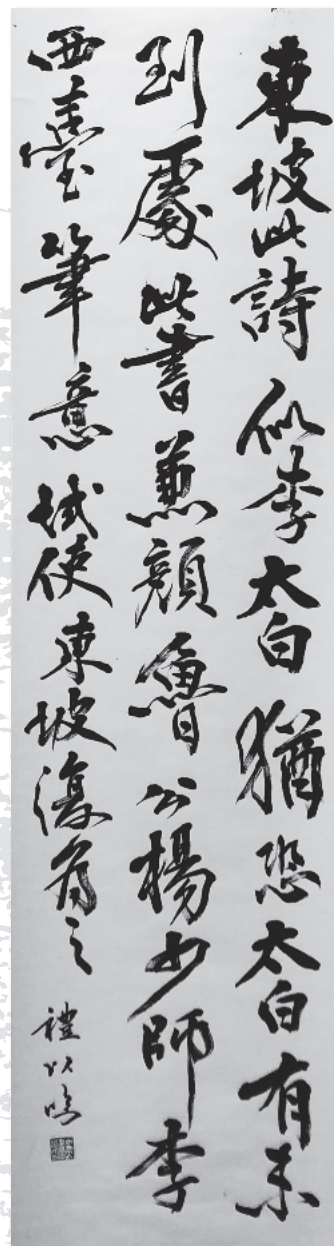 東坡此詩似李太白猶恐太白有未
到處此書兼顏魯公楊少師李
西臺筆意試使東坡復為之
禮以鳴